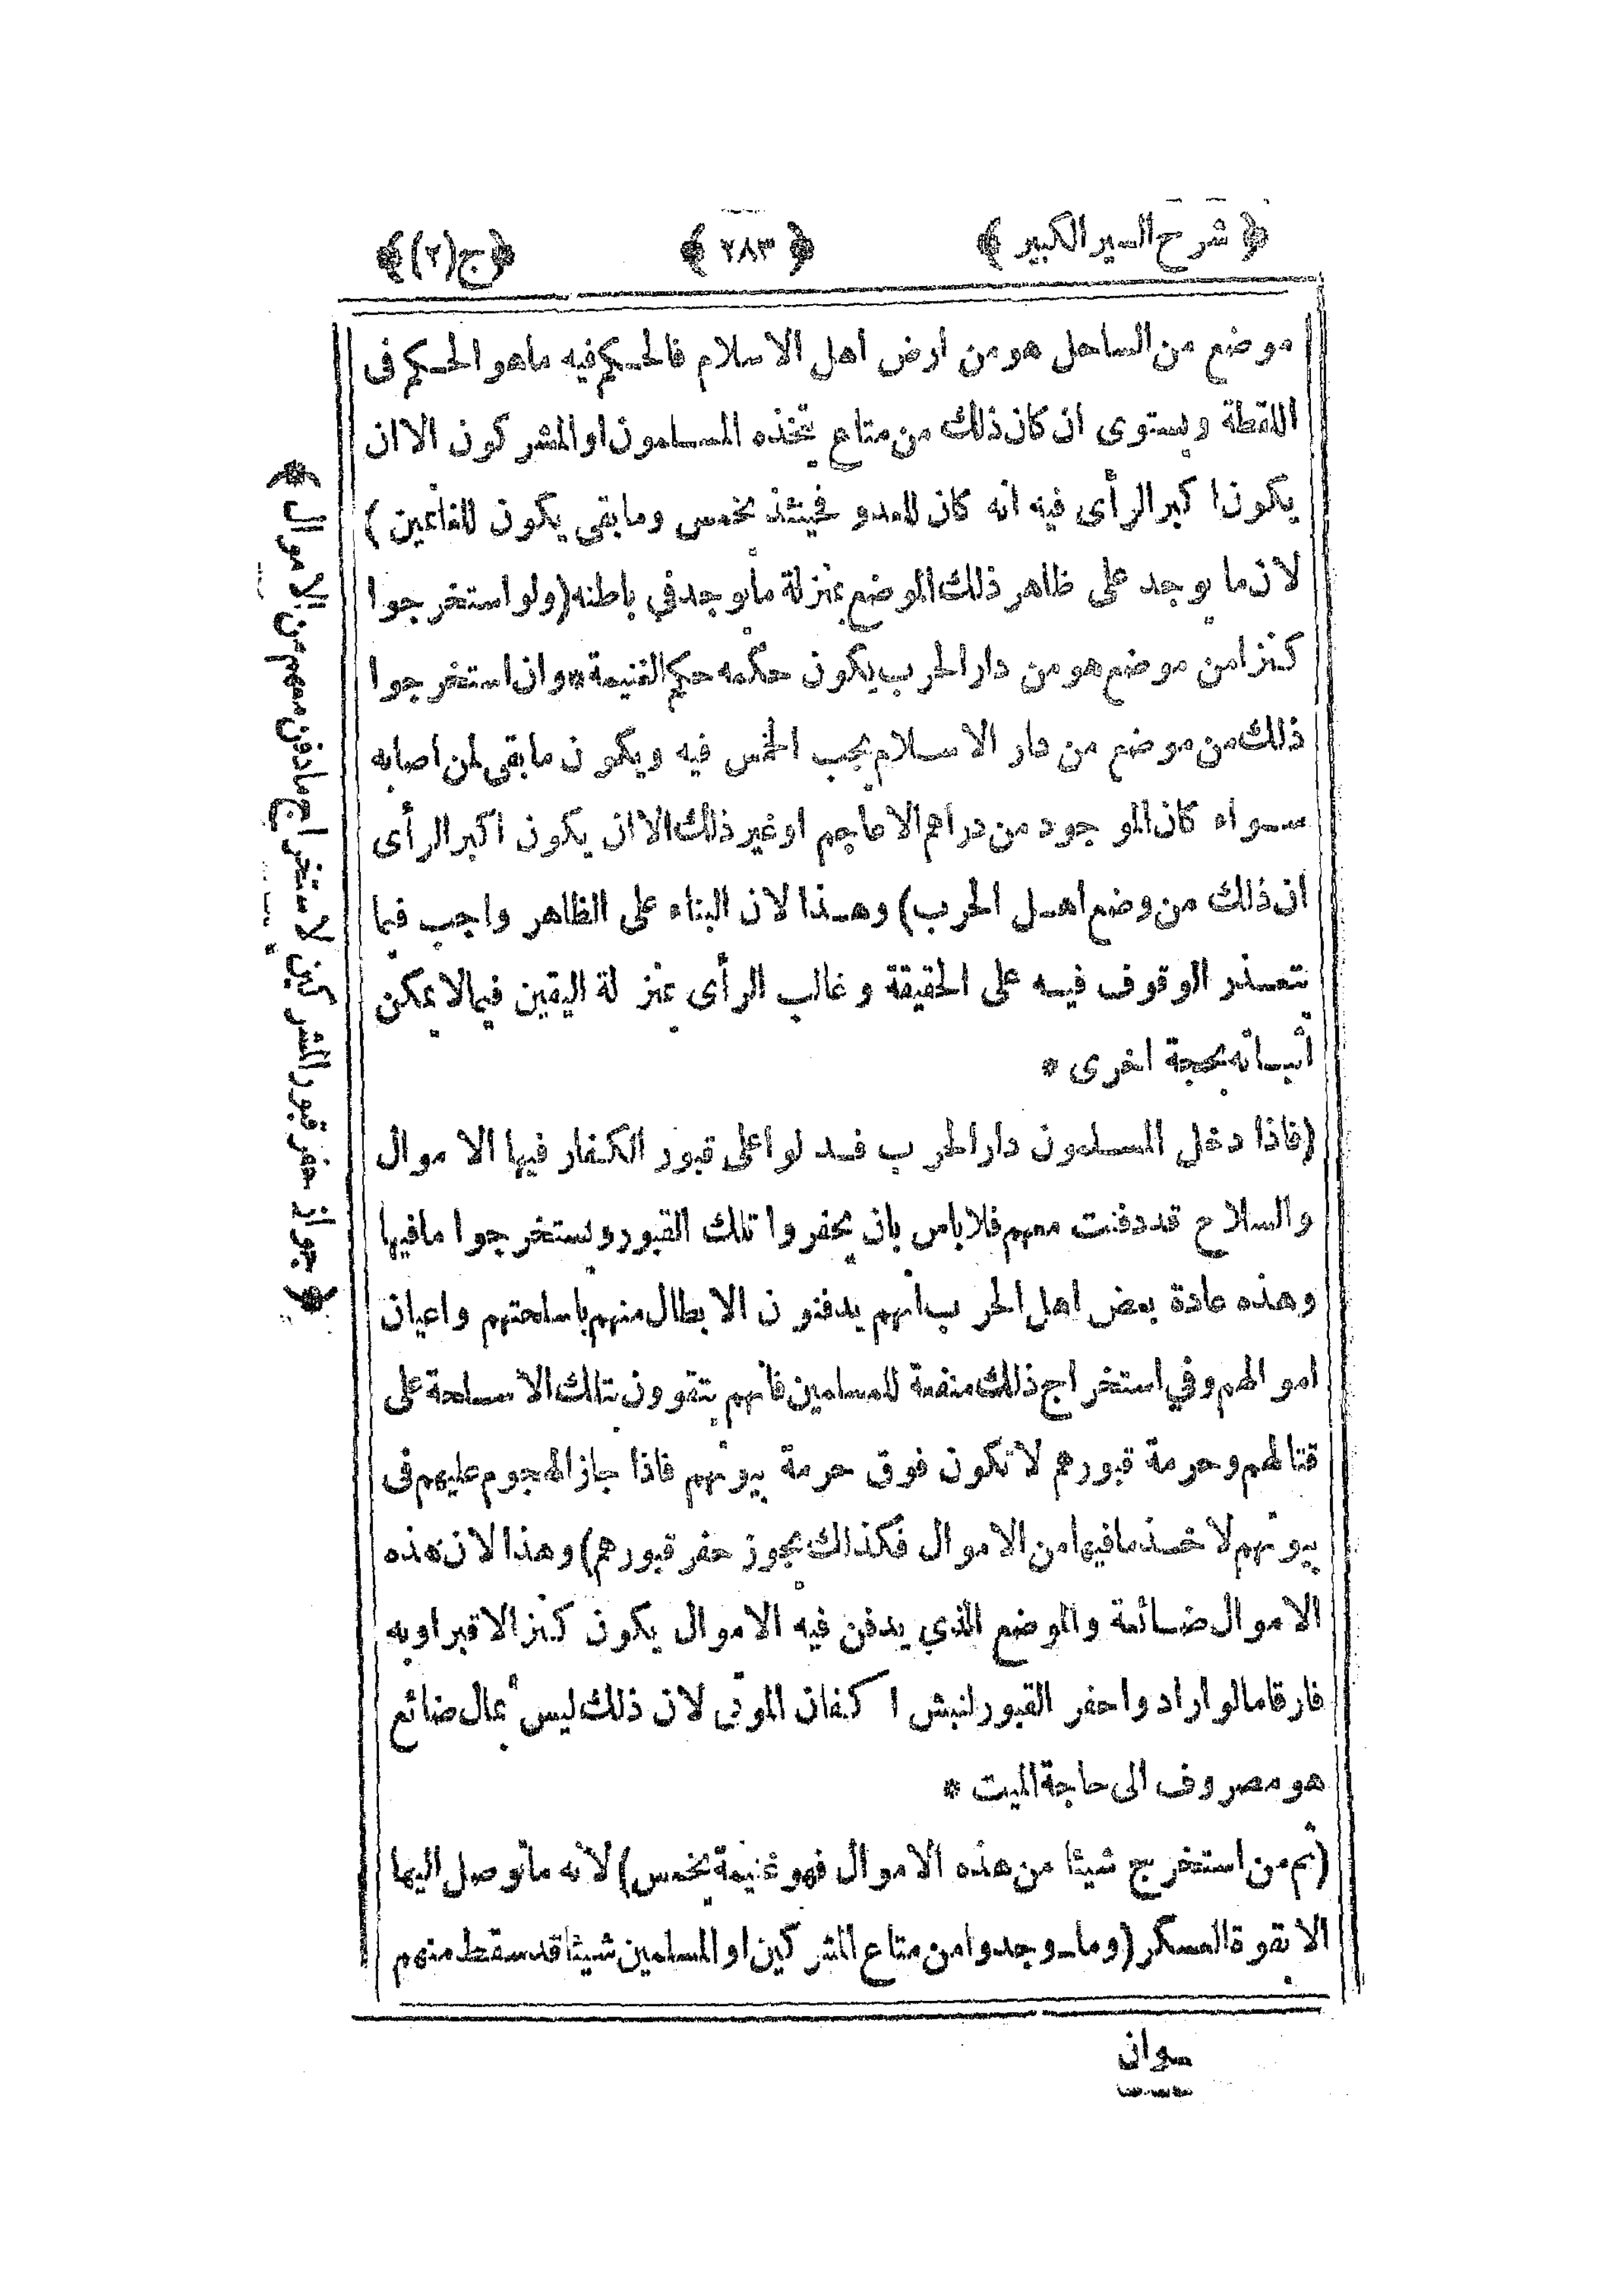 ﴿ شرح السير الكبير ﴾ ﴿ ٢٨٣ ﴾ ﴿ ج (٢) ﴾
موضع من الساحل هو من ارض اهل الاسلام فالحكم فيه ما هو الحكم فى
اللقطة ويستوى ان كان ذلك من متاع يتخذه المسلمون او المشركون الا ان
يكون اكبر الرأى فيه انه كان للعدو فحينئذ يخمس وما بقى يكون للغانمين )
لان ما يوجد على ظاهر ذلك الموضع بمنزلة ما يوجد في باطنه ( ولو استخرجوا
كنزا من موضع هو من دار الحرب يكون حكمه حكم الغنيمة * وان استخرجوا
ذلك من موضع من دار الاسلام يجب الخمس فيه ويكون ما بقى لمن اصابه
سواء كان الموجود من دراهم الاعاجم او غير ذلك الا ان يكون اكبر الرأى
ان ذلك من وضع اهل الحرب ) وهذا لان البناء على الظاهر واجب فيما
تتعذر الوقوف فيه على الحقيقة وغالب الرأى بمنزلة اليقين فيما لا يمكن
اثباته بحجة اخرى *
( فاذا دخل المسلمون دار الحرب فدلوا على قبور الكفار فيها الاموال
والسلاح قد دفنت معهم فلا باس بان يحفروا تلك القبور ويستخرجوا ما فيها
وهذه عادة بعض اهل الحرب انهم يدفنون الابطال منهم باسلحتهم واعيان
اموالهم وفي استخراج ذلك منفعة للمسلمين فانهم يتقوون بتلك الاسلحة على
قتالهم وحرمة قبورهم لا تكون فوق حرمة بيوتهم فاذا جاز الهجوم عليهم فى
بيوتهم لاخذ ما فيها من الاموال فكذلك يجوز حفر قبورهم ) وهذا لان هذه
الاموال ضائعة والموضع الذي يدفن فيه الاموال يكون كنزا لا قبرا وبه
فارق ما لو ارادوا حفر القبور لنبش اكفان الموتى لان ذلك ليس بمال ضائع
هو مصروف الى حاجة الميت *
( ثم من استخرج شيئا من هذه الاموال فهو غنيمة يخمس ) لانه ما توصل اليها
الا بقوة العسكر ( وما وجدوا من متاع المشركين او المسلمين شيئا قد سقط منهم
سوان
﴿ جواز حفر قبور المشركين لاستخراج ما دفن معهم من الاموال ﴾